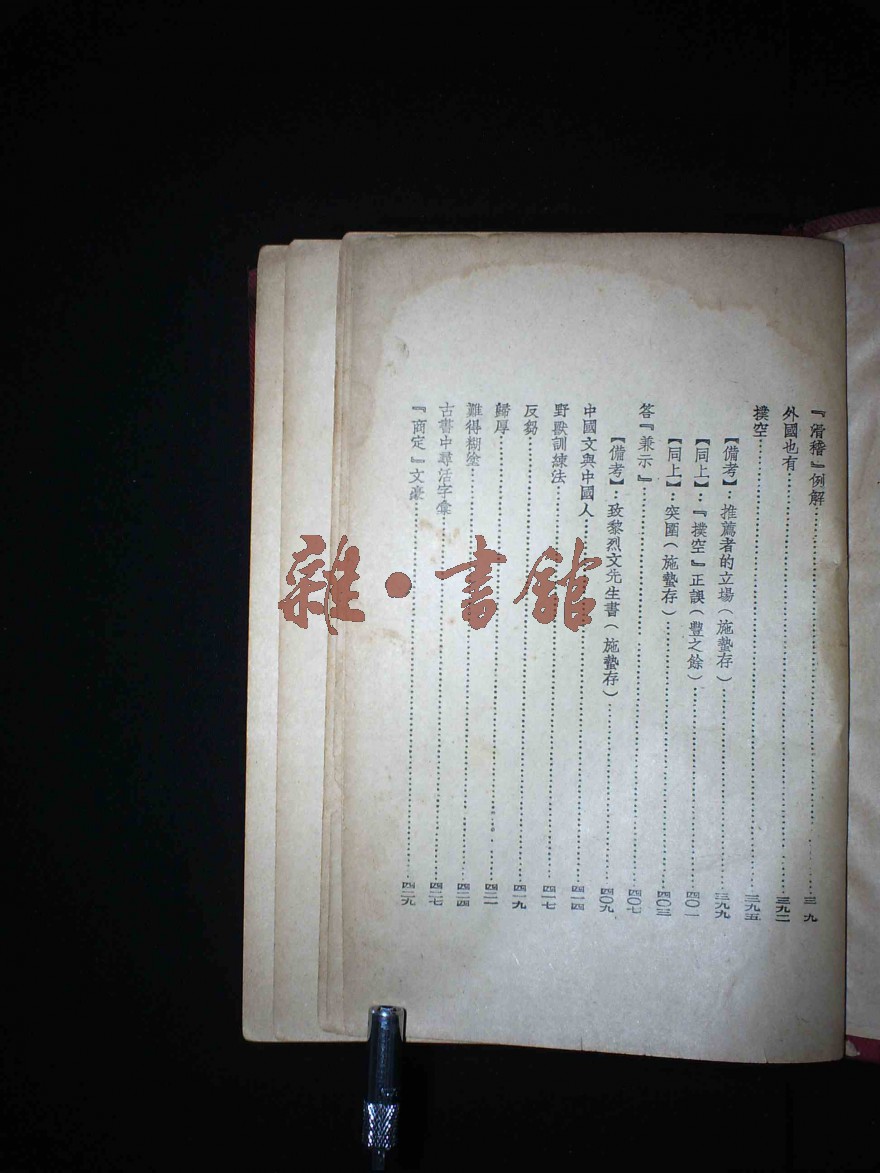 『滑稽』例解……三 九
外國也有……三九二
撲空……三九五
【備考】：推薦者的立場（施蟄存）……三九九
【同上】：『撲空』正誤（豐之餘）……四〇一
【同上】：突圍（施蟄存）……四〇三
答『兼示』……四〇七
【備考】：致黎烈文先生書（施蟄存）……四〇九
中國文與中國人……四一四
野獸訓練法……四一七
反芻……四一九
歸厚……四二一
難得糊塗……四二四
古書中尋活字彙……四二七
『商定』文豪……四二九
雜·書館